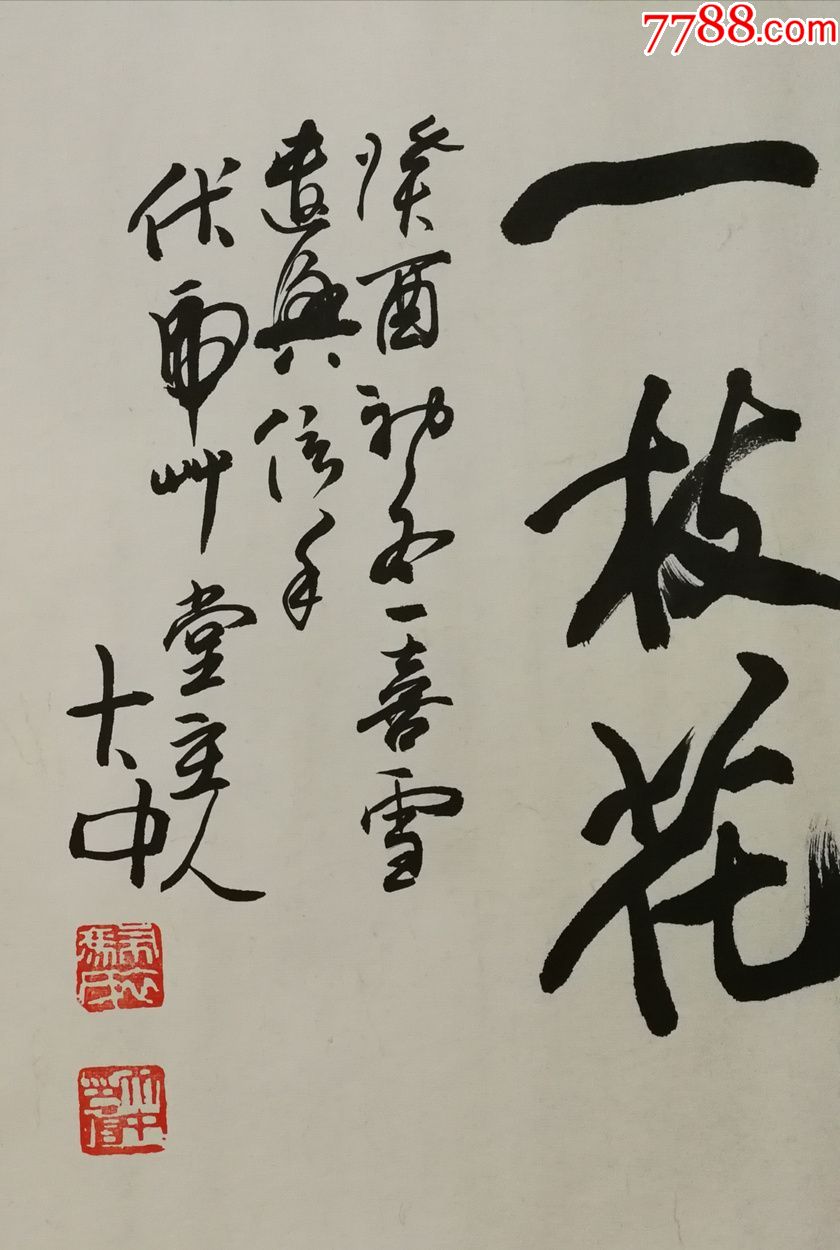 7788.com
一枝花
癸酉初冬喜雪
遣兴信手
伏虎艸堂主人
大中